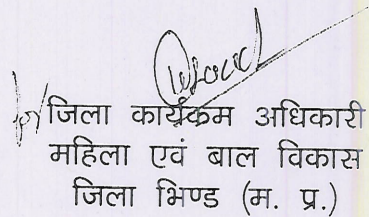 जिला कार्यक्रम अधिकारी
महिला एवं बाल विकास
जिला भिण्ड (म. प्र.)